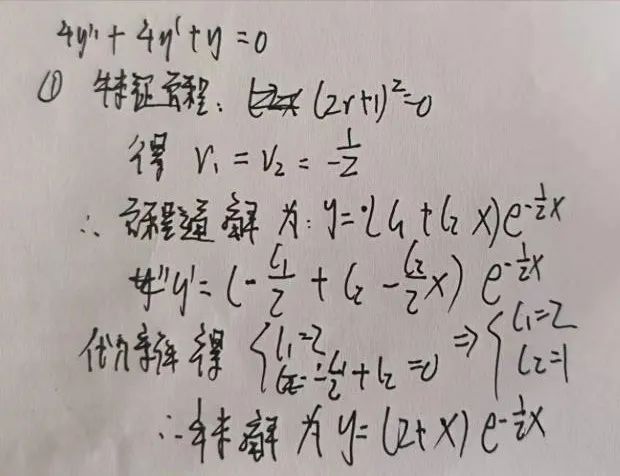 4y''+4y'+y=0
① 特征方程: (2r+1)²=0
得 r₁=r₂=-1/2
∴ 方程通解为: y=(C₁+C₂x)e^{-1/2x}
y'=(-C₁/2+C₂-C₂/2x)e^{-1/2x}
代入条件得 {C₁=2, -C₁/2+C₂=0 ⇒ {C₁=2, C₂=1
∴ 特解为 y=(2+x)e^{-1/2x}